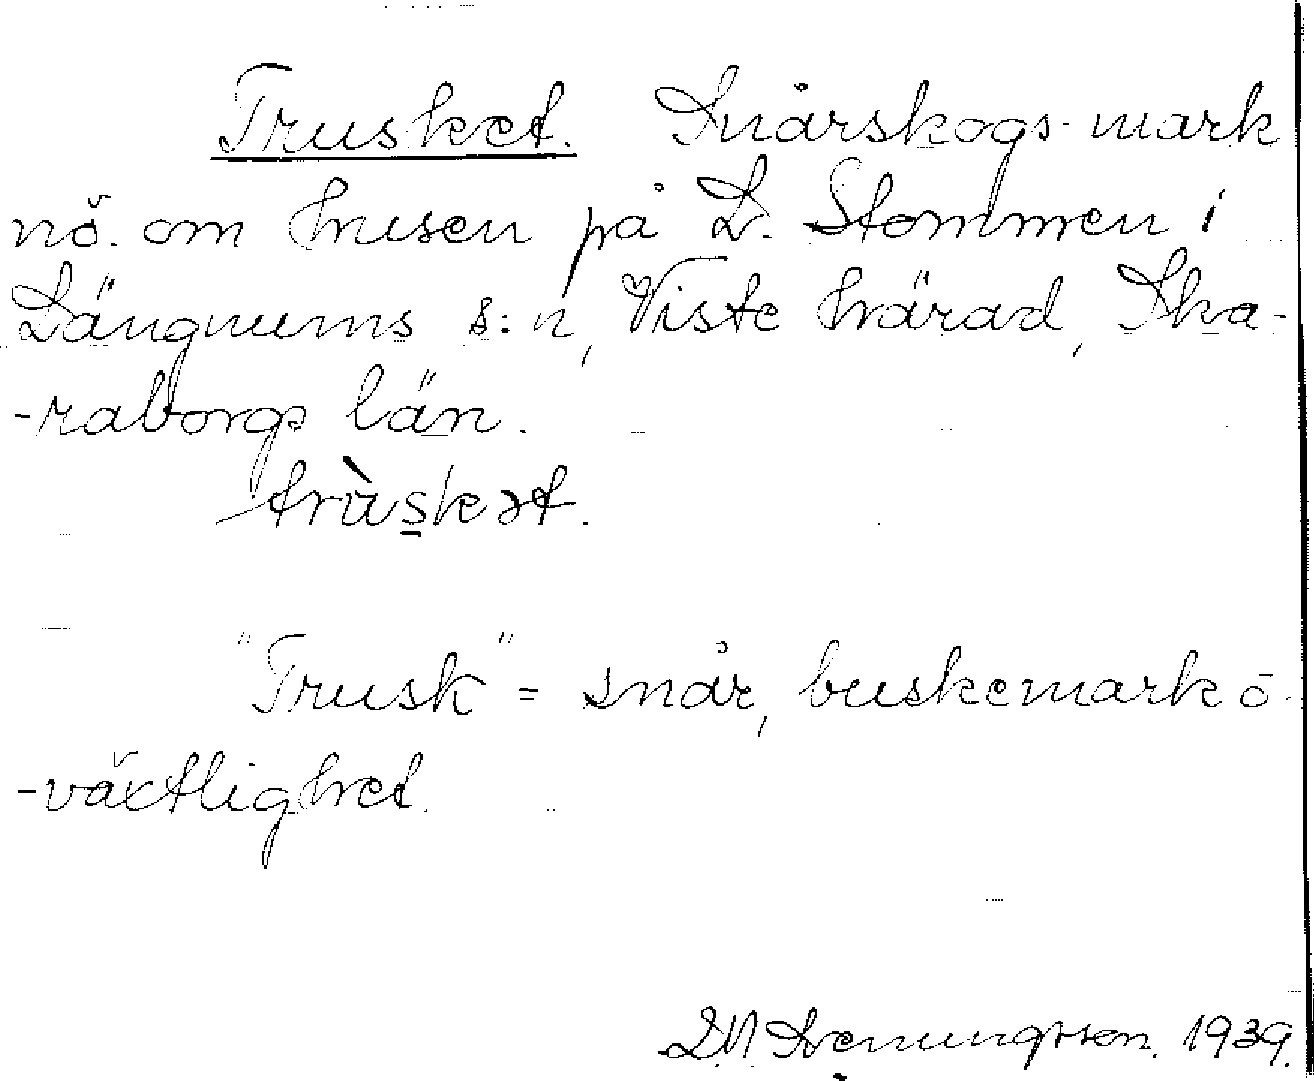 Trusket. Snårskogs-mark
nö. om husen på L. Stommen i
Längnums s:n, Viste härad, Ska-
-raborgs län.
trùsket.
"Trusk" = snår, buskemark o-
-växtlighet.
1939.